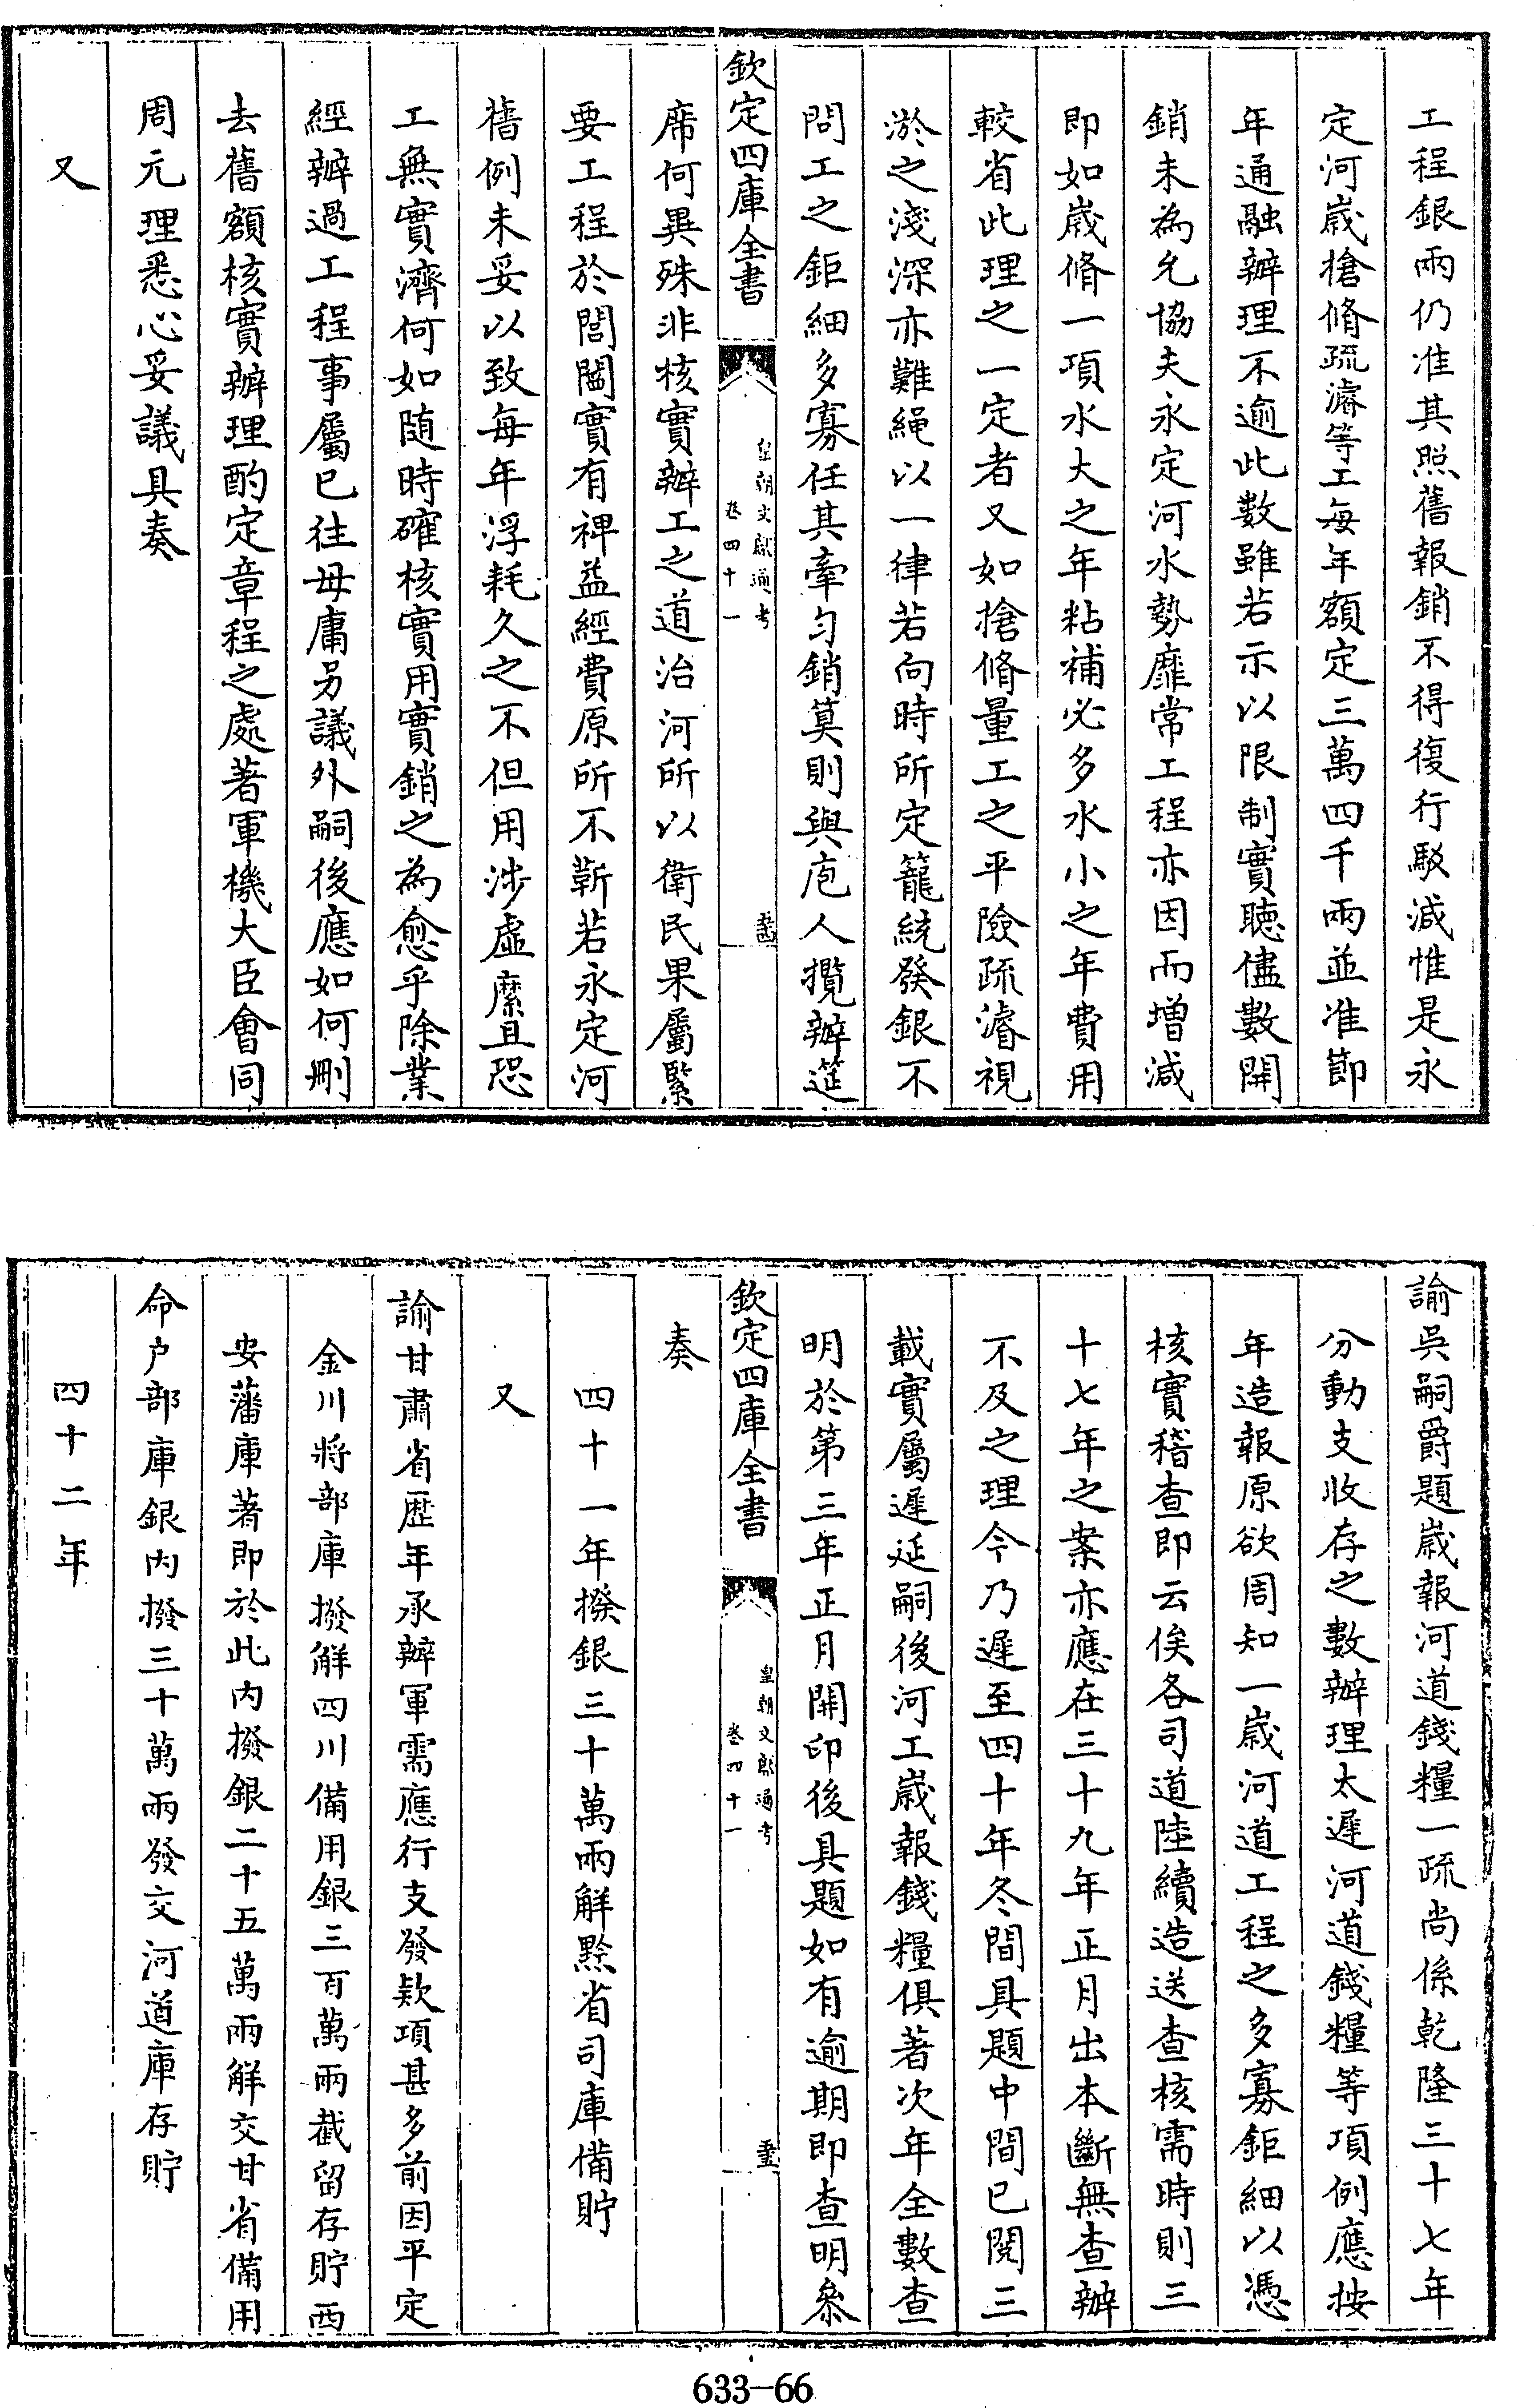 工程銀兩仍准其照舊報銷不得復行駁減惟是永
定河嵗搶脩疏濬等工每年額定三萬四千兩並准節
年通融辦理不逾此數雖若示以限制實聽儘數開
銷未為允協夫永定河水勢靡常工程亦因而增減
即如嵗脩一項水大之年粘補必多水小之年費用
較省此理之一定者又如搶脩量工之平險疏濬視
淤之淺深亦難繩以一律若向時所定籠統發銀不
問工之鉅細多寡任其牽勻銷算則與庖人攬辦筵
欽定四庫全書
皇朝文獻通考
卷四十一
席何異殊非核實辦工之道治河所以衛民果屬緊
要工程於閭閻實有裨益經費原所不靳若永定河
舊例未妥以致每年浮耗久之不但用涉虛縻且恐
工無實濟何如随時確核實用實銷之為愈乎除業
經辦過工程事屬已往毋庸另議外嗣後應如何刪
去舊額核實辦理酌定章程之處著軍機大臣會同
周元理悉心妥議具奏
又
諭吳嗣爵題嵗報河道錢糧一疏尚係乾隆三十七年
分動支收存之數辦理太遲河道錢糧等項例應按
年造報原欲周知一嵗河道工程之多寡鉅細以憑
核實稽查即云俟各司道陸續造送查核需時則三
十七年之案亦應在三十九年正月出本斷無查辦
不及之理今乃遲至四十年冬間具題中間已閱三
載實屬遲延嗣後河工嵗報錢糧俱著次年全數查
明於第三年正月開印後具題如有逾期即查明叅
欽定四庫全書
皇朝文獻通考
卷四十一
奏
四十一年撥銀三十萬兩解黔省司庫備貯
又
諭甘肅省歴年承辦軍需應行支發欵項甚多前因平定
金川將部庫撥解四川備用銀三百萬兩截留存貯西
安藩庫著即於此内撥銀二十五萬兩解交甘省備用
命户部庫銀内撥三十萬兩發交河道庫存貯
四十二年
633-66